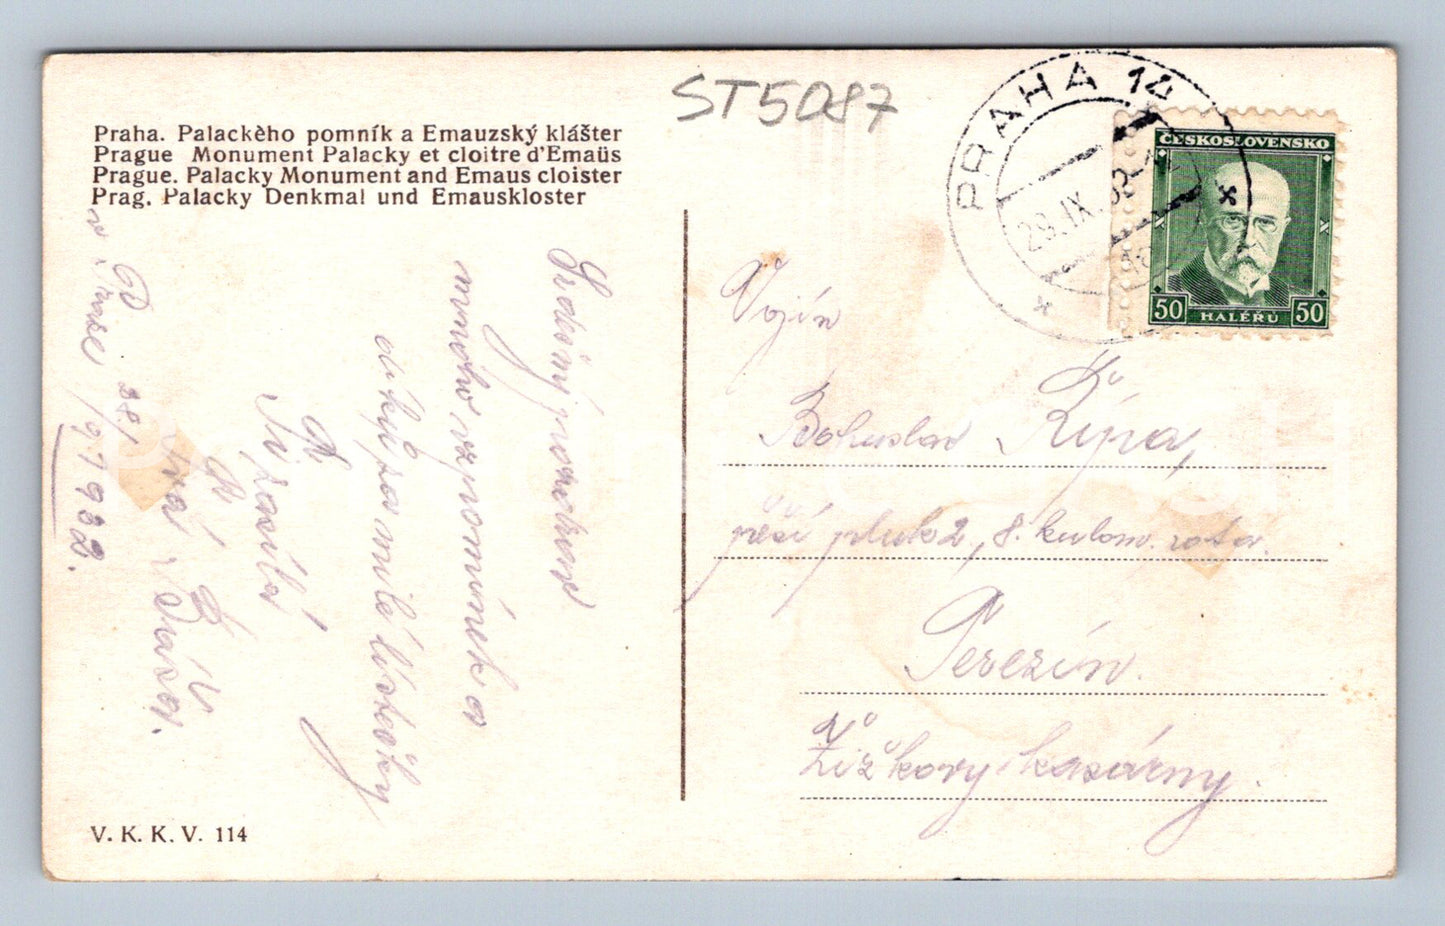 ST5087
Praha. Palackèho pomník a Emauzský klášter
Prague Monument Palacky et cloitre d'Emaüs
Prague. Palacky Monument and Emaus cloister
Prag. Palacky Denkmal und Emauskloster
PRAHA 14
29.IX.32
ČESKOSLOVENSKO
50 HALÉŘŮ 50
Srdečný pozdrav
mnoho vzpomínek a
díky za milé lístečky
Ti zasílá
Tvá
v Praze 28./9. 1932.
Vojín
Bohuslav Řípa,
pěší pluk 2, 8. kulom. rota.
Terezín.
Žižkovy kasárny.
V. K. K. V. 114